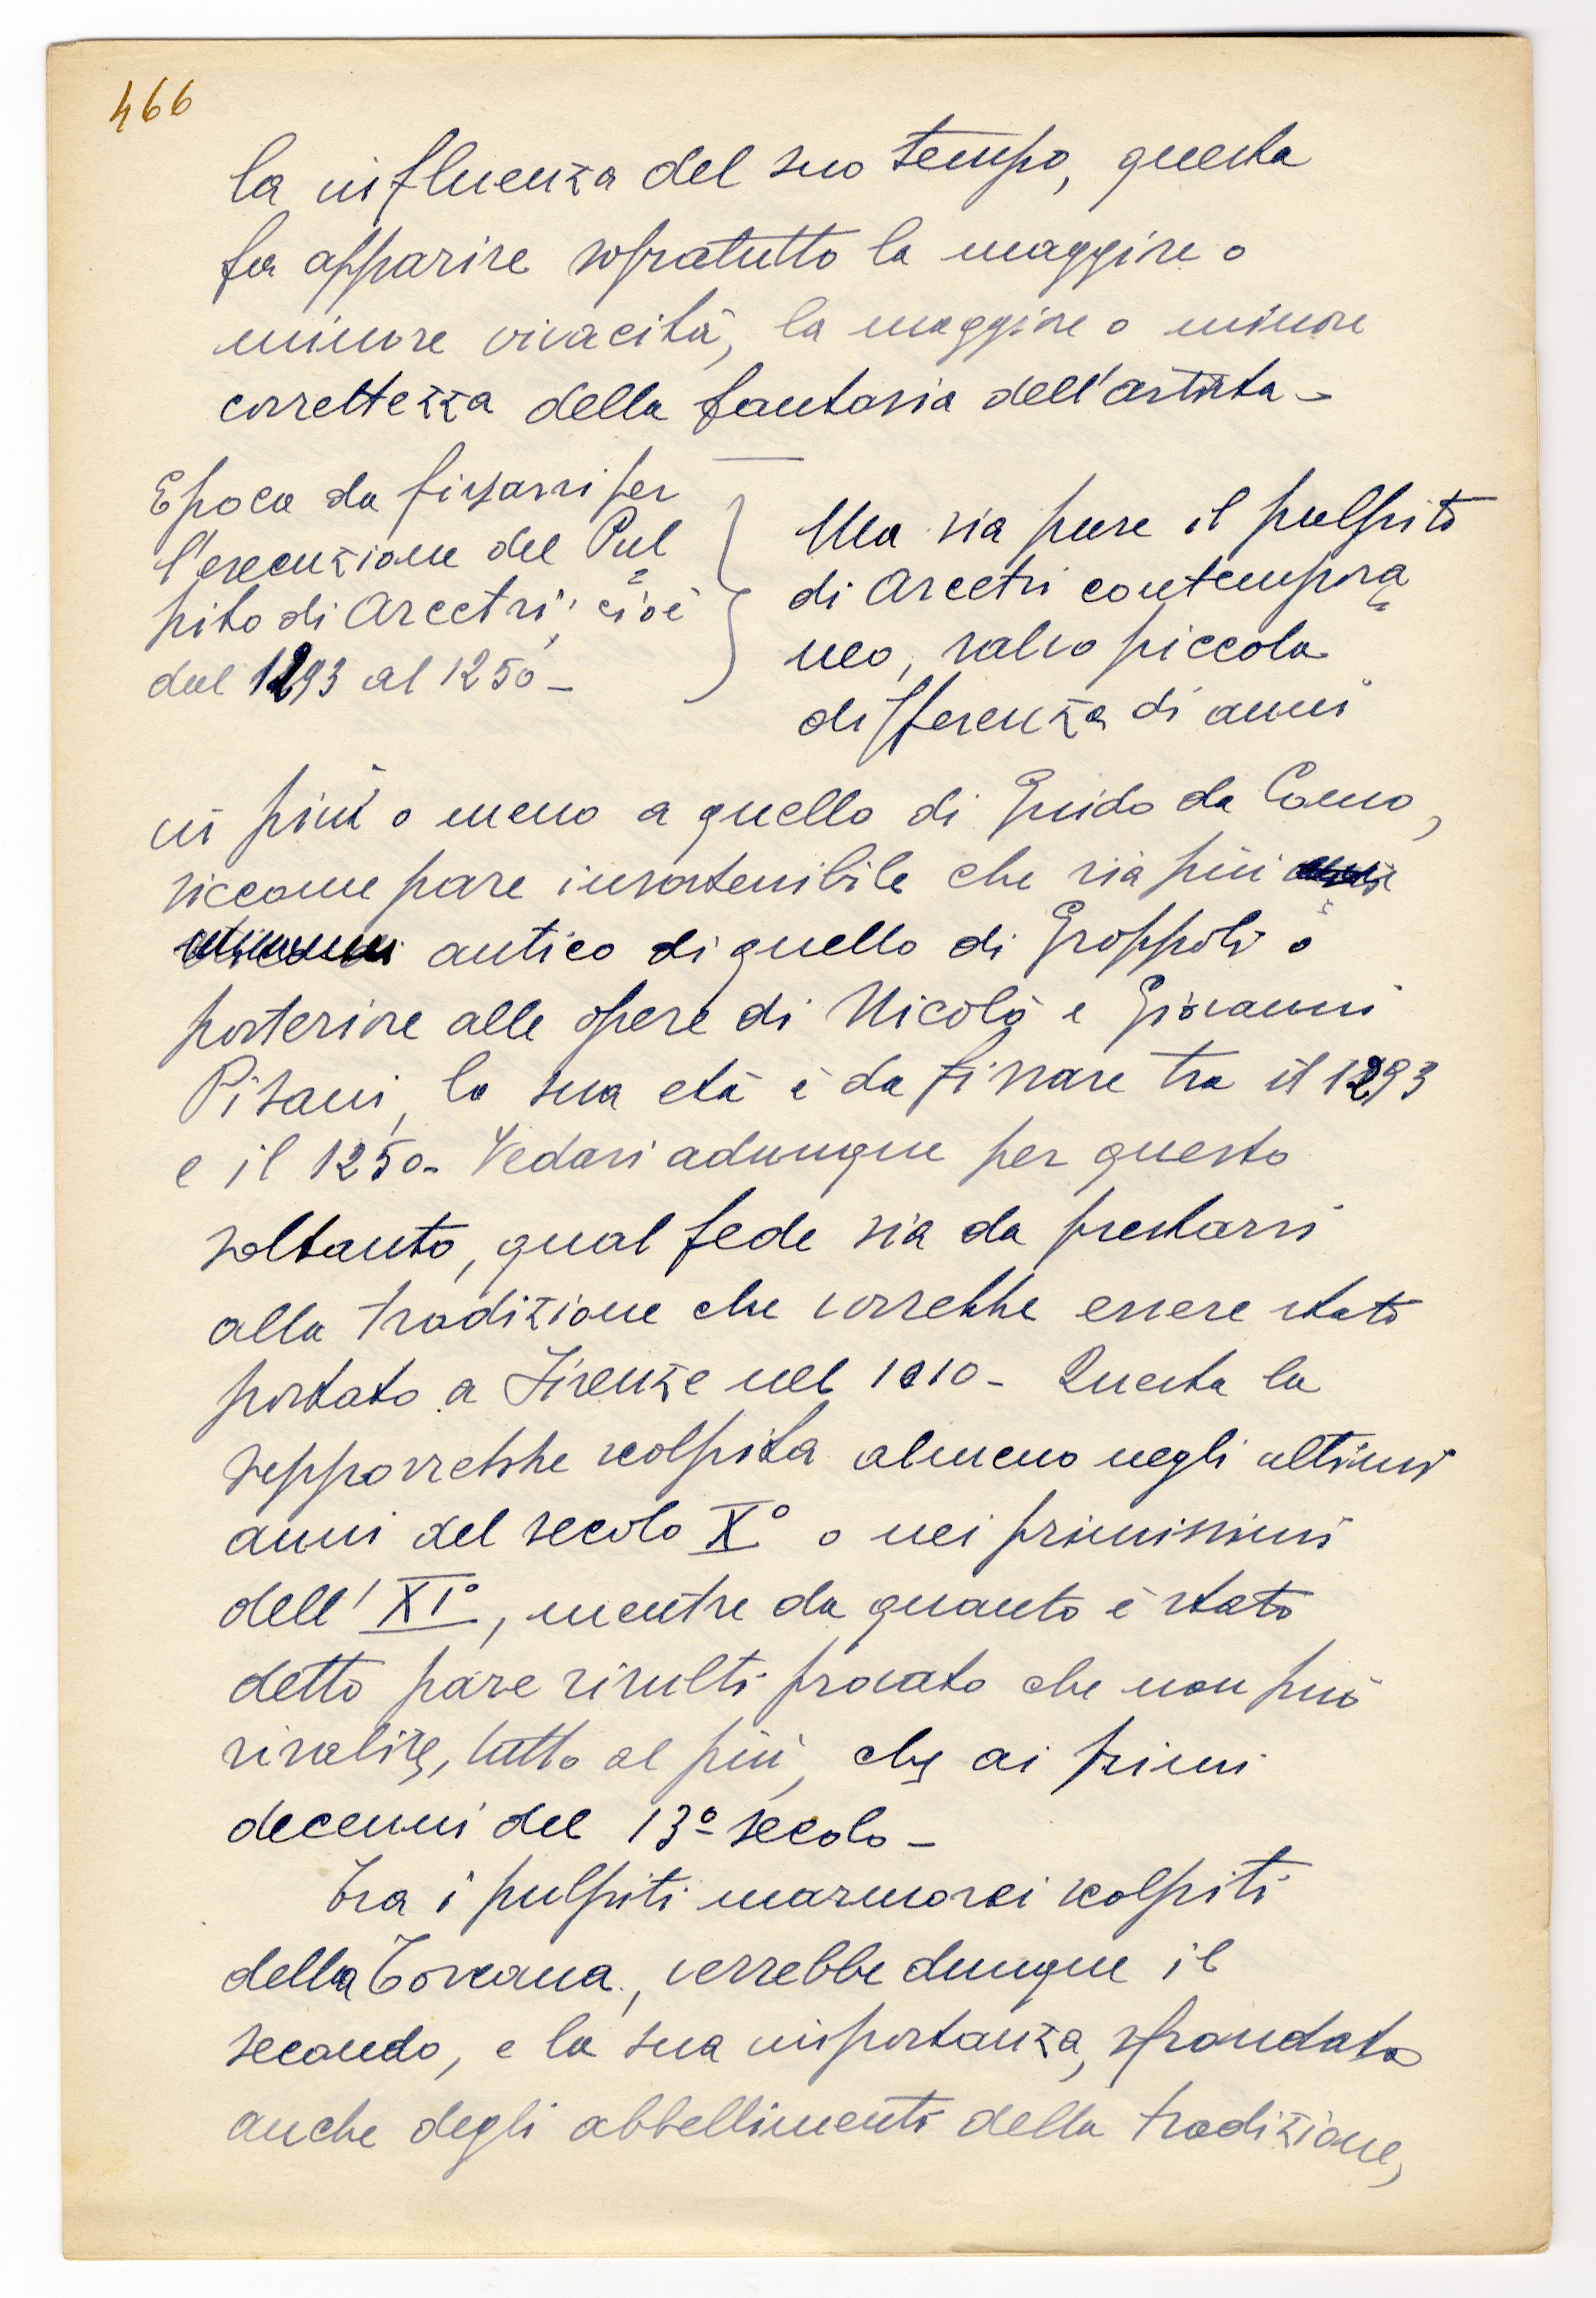 466
la influenza del suo tempo, questa
fa apparire sopratutto la maggiore o
minore vivacità, la maggiore o minore
correttezza della fantasia dell'artista -
Epoca da fissarsi per
l'esecuzione del Pul
pito di Arcetri, cioè
dal 1293 al 1250 -
Ma sia pure il pulpito
di Arcetri contempora
neo, salvo piccola
differenza di anni
in più o meno a quello di Guido da Como,
siccome pare insostenibile che sia più
antico di quello di Groppoli o
posteriore alle opere di Nicolò e Giovanni
Pisani, la sua età è da fissare tra il 1293
e il 1250 - Vedasi adunque per questo
soltanto, qual fede sia da prestarsi
alla tradizione che vorrebbe essere stato
portato a Firenze nel 1010 - Questa la
supporrebbe scolpita almeno negli ultimi
anni del secolo X° o nei primissimi
dell' XI°, mentre da quanto è stato
detto pare risulti provato che non può
risalire, tutto al più, che ai primi
decenni del 13° secolo -
Tra i pulpiti marmorei scolpiti
della Toscana, verrebbe dunque il
secondo, e la sua importanza, sfrondata
anche degli abbellimenti della tradizione,